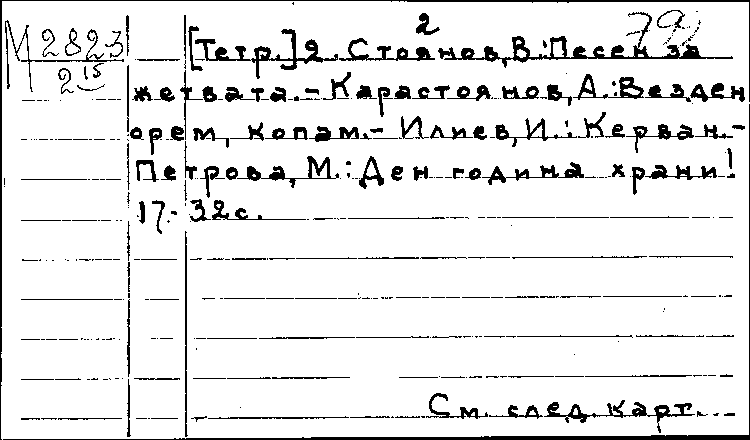 2
М 2823
2 15
[Тетр.] 2. Стоянов, В.: Песен за
жетвата. - Карастоянов, А.: Везден
орем, копам. - Илиев, И.: Керван. -
Петрова, М.: Ден година храни!
17. - 32 с.
См. след. карт.